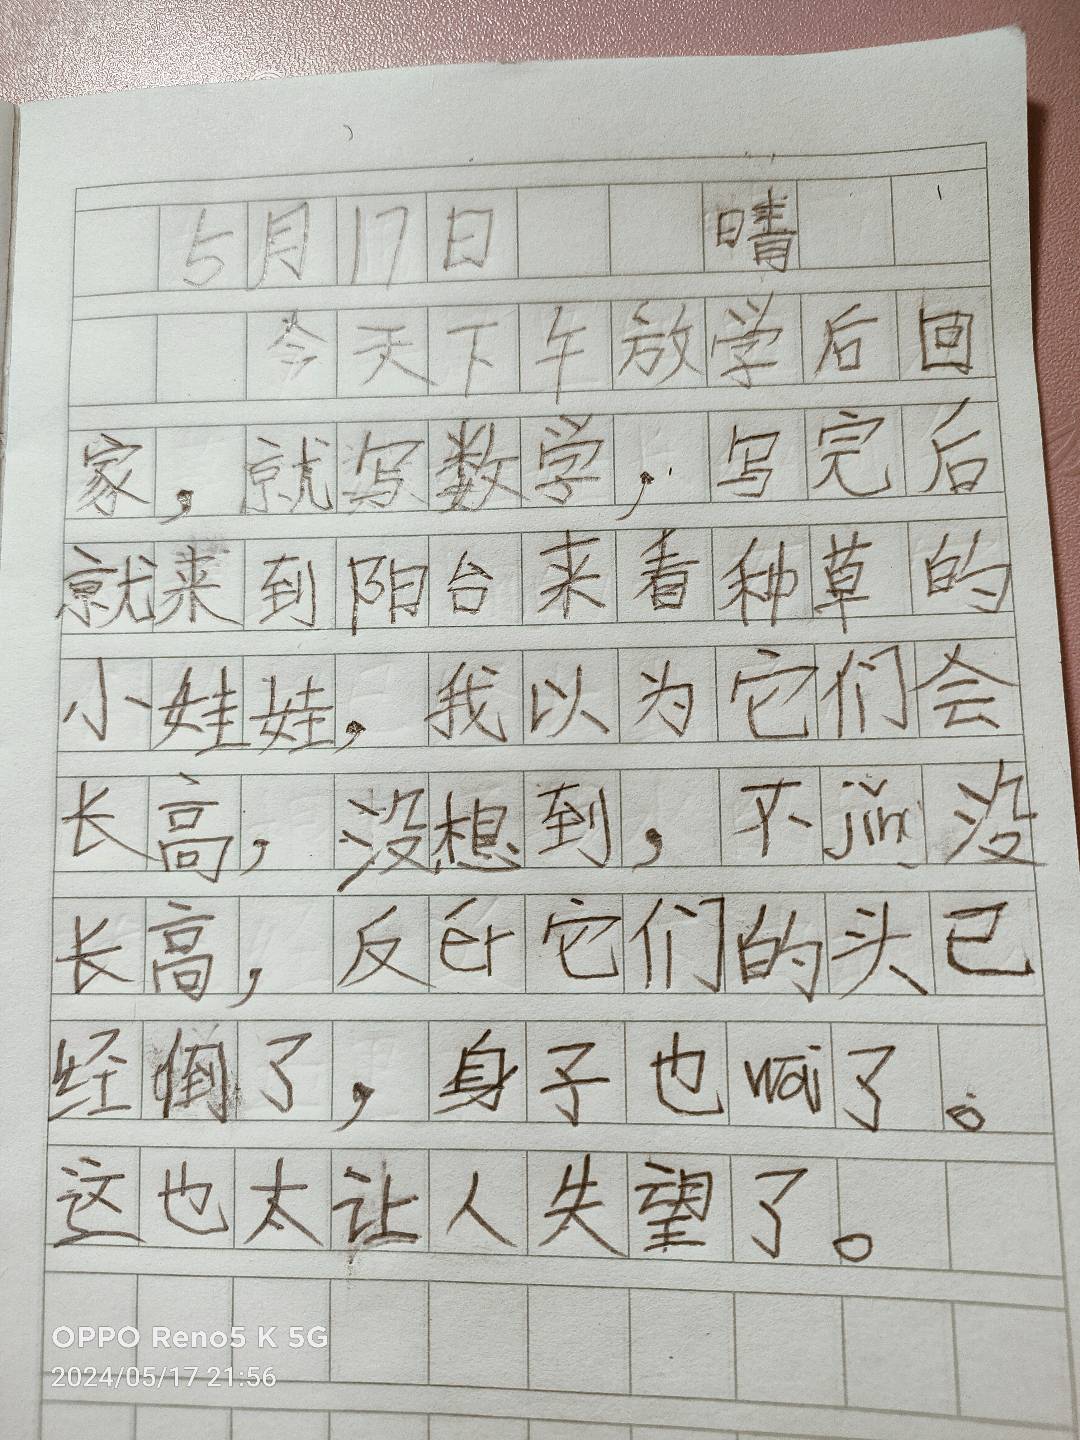 5月17日 晴
今天下午放学后回
家，就写数学，写完后
就来到阳台来看种草的
小娃娃，我以为它们会
长高，没想到，不jǐn没
长高，反ér它们的头已
经倒了，身子也wāi了。
这也太让人失望了。
OPPO Reno5 K 5G
2024/05/17 21:56